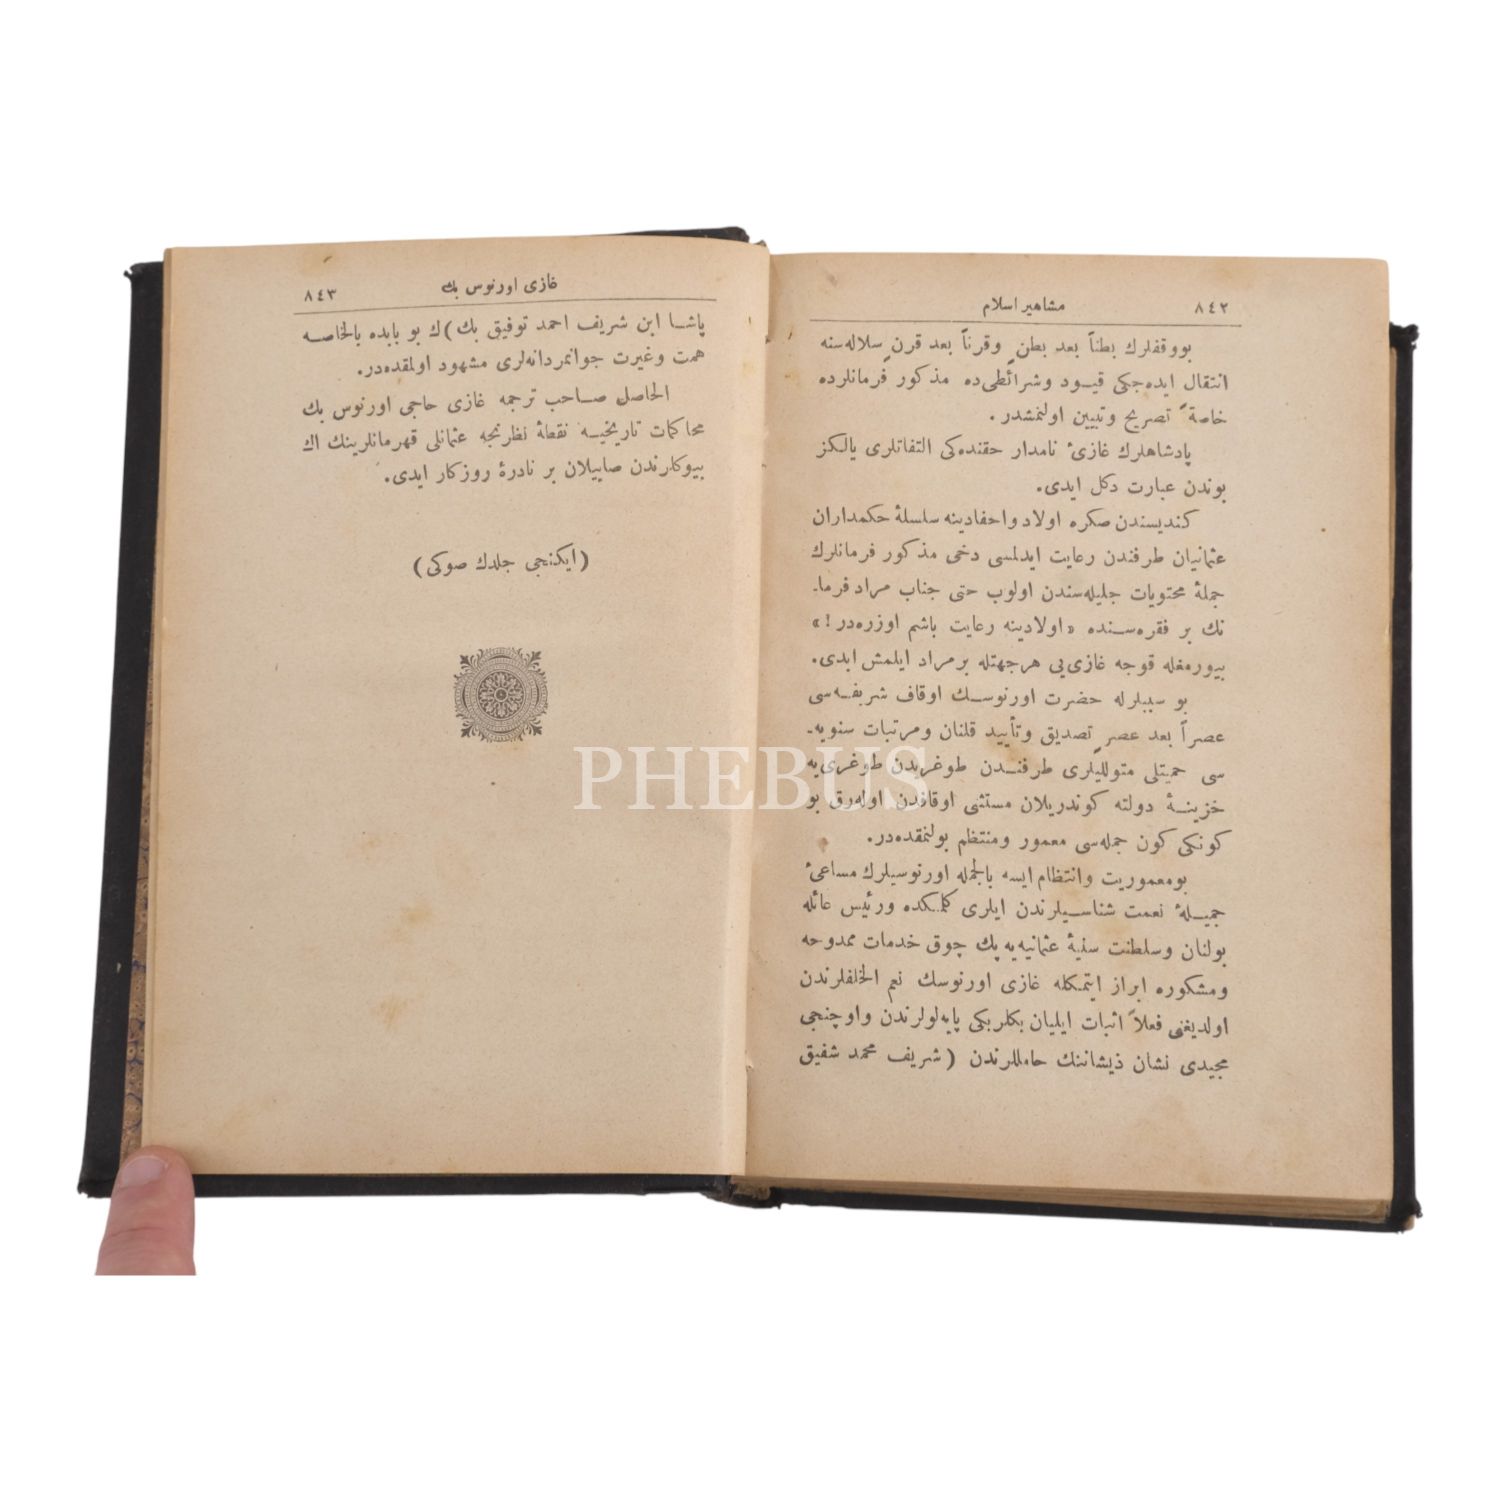 ٨٤٢ مشاهیر اسلام
بووقفلرك بطناً بعد بطنٍ وقرناً بعد قرنٍ سلاله‌سنه
انتقال ایده‌جکی قیود وشرائطی‌ده مذکور فرمانلرده
خاصةً تصریح وتبیین اولنمشدر.
پادشاهلرك غازیٔ نامدار حقنده‌کی التفاتلری یالکز
بوندن عبارت دکل ایدی.
کندیسندن صکره اولاد واحفادینه سلسلهٔ حکمداران
عثمانیان طرفندن رعایت ایدلمسی دخی مذکور فرمانلرك
جملهٔ محتویات جلیله‌سندن اولوب حتی جناب مراد فرما-
نك بر فقره‌سنده «اولادینه رعایت باشم اوزره‌در!»
بیورمغله قوجه غازی‌یی هرجهتله برمراد ایلمش ایدی.
بو سببلرله حضرت اورنوسك اوقاف شریفه‌سی
عصراً بعد عصرٍ تصدیق وتأیید قلنان ومرتبات سنویه-
سی حمیتلی متوللیلری طرفندن طوغریدن طوغری‌یه
خزینهٔ دولته کوندریلان مستثنی اوقافدن اوله‌رق بو
کونکی کون جمله‌سی معمور ومنتظم بولنمقده‌در.
بومعموریت وانتظام ایسه بالجمله اورنوسیلرك مساعیٔ
جمیلهٔ نعمت شناسیلرندن ایلری کلمکده ورئیس عائله
بولنان وسلطنت سنیهٔ عثمانیه‌یه پك چوق خدمات ممدوحه
ومشکوره ابراز ایتمکله غازی اورنوسك نعم الخلفلرندن
اولدیغنی فعلاً اثبات ایلیان بکلربکی پایه‌لولرندن واوچنجی
مجیدی نشان ذیشاننك حاملارندن (شریف محمد شفیق
غازی اورنوس بك ٨٤٣
پاشا ابن شریف احمد توفیق بك)ك بو بابده بالخاصه
همت وغیرت جوانمردانه‌لری مشهود اولمقده‌در.
الحاصل صاحب ترجمه غازی حاجی اورنوس بك
محاکمات تاریخیه نقطهٔ نظرنجه عثمانلی قهرمانلرینك اك
بیوکلرندن صاییلان بر نادرهٔ روزکار ایدی.
(ایکنجی جلدك صوکی)
PHEBUS